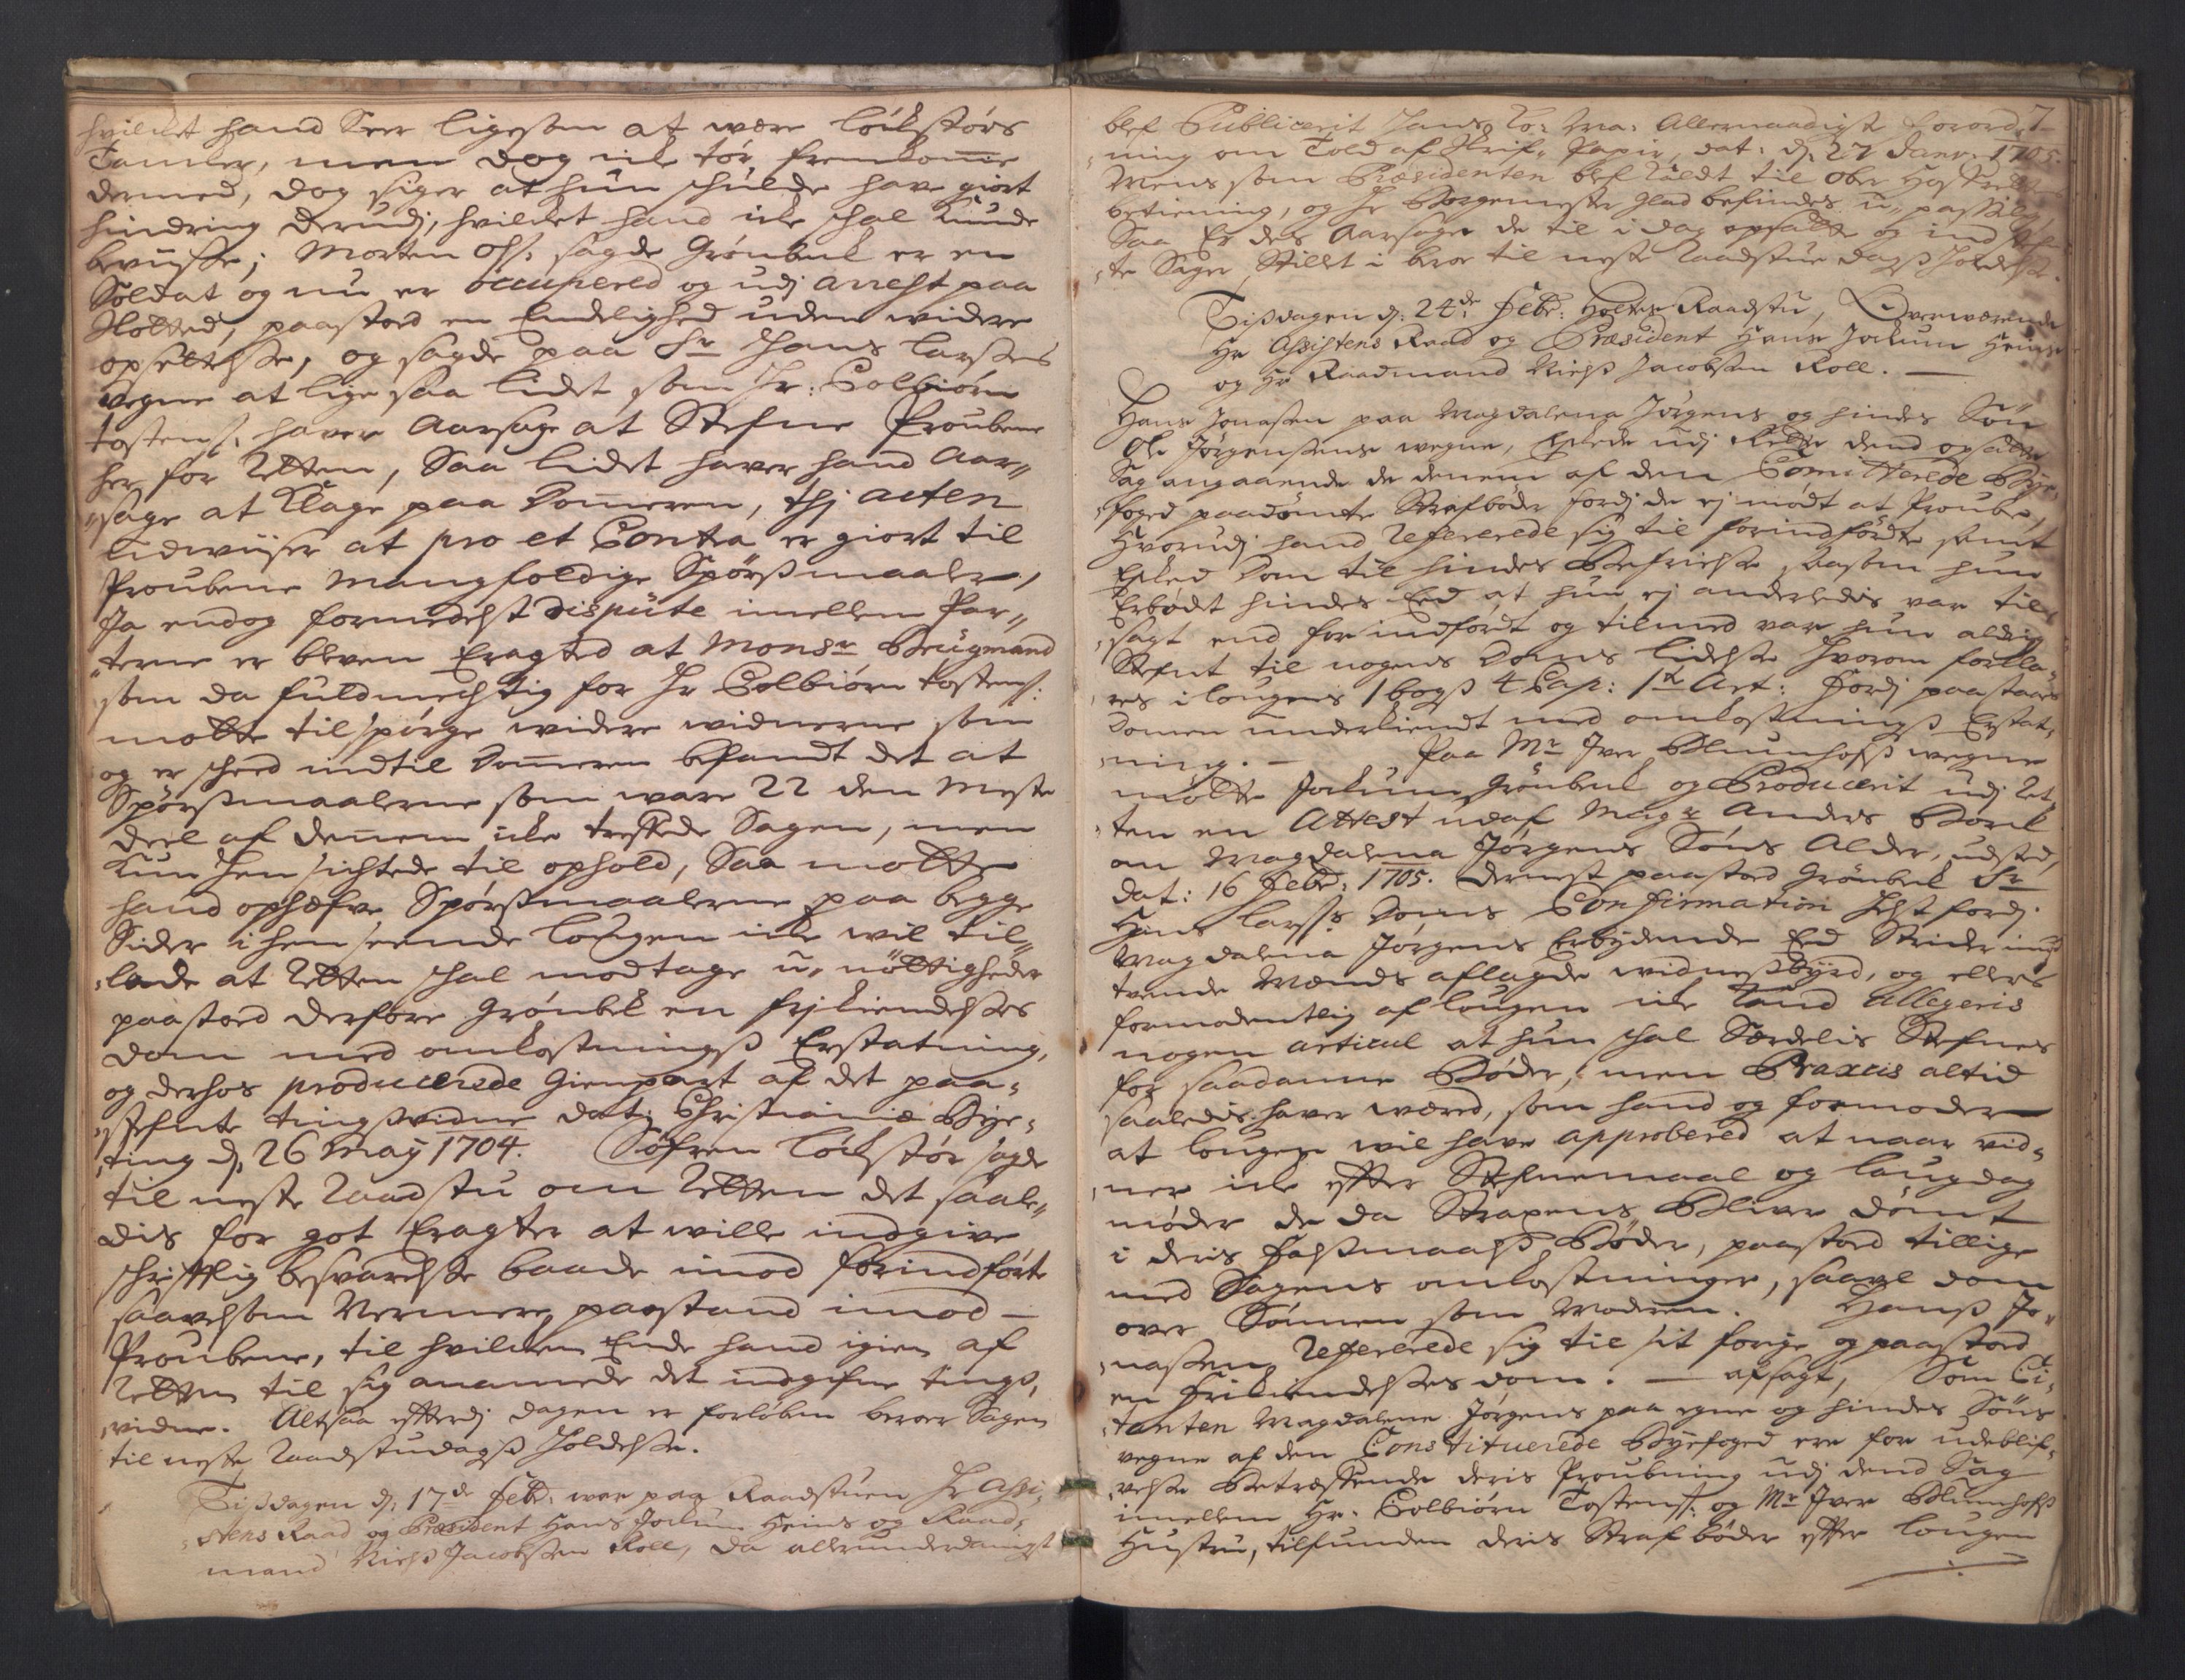 hvilket hand Seer ligesom at være Løchstørs
Tancker, men dog icke tør fremkomme
dermed, dog siger at hun schulde have giort
hindring derudj, hvilcket hand icke schal kunde
beviisse; Morten Ols: sagde Grønbech er en
Soldat og nu er occupered og udj arrest paa
Slottet, paastoed en Endelighed uden widere
opsettelse, og sagde paa Sr Hans Larsens
vegne at lige saa lidet som Hr: Colbiørn
Tostens: haver Aarsage at Stefne Proubene
her for Retten, Saa lidet haver hand Aar„
„sage at Klage paa Dommeren, thj acten
udwiiser at pro et Contra er giort til
Proubene mangfoldige Spørsmaaler,
Ja endog formedelst dispute imellem Par„
„terne er bleven Eragted at Monsr Brügmand
som da fuldmechtig for Hr Colbiørn Tostens:
motte tilspørge widere widnerne som
og er scheed indtil Dommeren befandt det at
Spørsmaalerne som ware 22 den meste
deel af dennem icke treffede Sagen, men
kun hensichtede til ophold, Saa motte
hand ophæfve Spørsmaalerne paa begge
Sider i henseende Lougen icke wil til„
„lade at Retten schal modtage u„nøttigheder
paastoed derfore Grønbech en frjkiendelses
dom med omkostnings Erstatning,
og derhos producerede Gienpart af det paa„
„stefnte tingswidne dat: Christianiæ Bye„
„ting d. 26 May 1704. Søfren Løchstør sagde
til neste Raadstu om Retten det saale„
dis for got Eragter at wille indgive
schrifftlig besvarelse baade imod forindførte
saavelsom Vermere paastand imod —
Proubene, til hvilcken Ende hand igien af
Retten til sig anammede det indgifne tings„
„vidne. Altsaa efterdj dagen er forløben beroer Sagen
til neste Raadstudags Holdelse.
Tisdagen d: 17de Febr: war paa Raadstuen Hr Assi„
„stens Raad og Præsident Hans Jockum Heins og Raad„
mand Niels Jacobsen Roll, da allerunderdanigst
7
blef Publicerit Hans Ko: Ma: Allernaadigste forord„
„ning om Told af Skrif„Papir, dat: d: 27 Janr: 1705.
Mens som Præsidenten blef kaldt til Ober Hof Rettens
betiening, og Hr Borgemester Glad befindes u„passelig,
Saa Er des Aarsage de til i dag opsatte og indstefn„
„te Sager Stillet i beroe til neste Raadstue dags Holdelse.
Tisdagen d: 24de Febr: Holtes Raadstu, Overwærende
Hr Assistens Raad og Præsident Hans Jockum Heins
og Hr Raadmand Niels Jacobsen Roll. —
Hans Jonassen paa Magdalena Jørgens og hindes Søn
Ole Jørgensens wegne, Eschede udj Rette dend opsatte
Sag angaaende de dennem af den Comitterede Bye„
„foged paadømte Strafbøder fordj de ej mødt at Proube,
Hvorudj hand Refererede sig til forindførdte samt
Esched Dom til hindes Befrielse, saasom hun
Erbødt hindes Eed at hun ej anderledis var til„
„sagt end forindført og tilmed var hun aldrig
Stefnt til nogens Doms lidelse hvorom forkla„
„res i lougens 1 bogs 4 Cap: 1te Art: Fordj paastaaes
Domen underkiendt med omkostnings Erstat„
„ning. — Paa Mr Iver Blumhofs wegne
mötte Jockum Grønbech og Producerit udj Ret„
„ten en Attest udaf Magr Anders Borch
om Magdalena Jørgens Søns Alder, udsted,
dat: 16 Febr: 1705. Dernest paastoed Grønbech Sr
Hans Larss: Doms Confirmation Helst fordj
Magdalena Jørgens Erbydende Eed Strider imod
tvende Mænds aflagde widnesbyrd, og ellers
formodentlig af lougen icke kand allegeris
nogen articul at hun schal Særdelis Stefnes
for saadanne Bøder, men Praxeis altid
saaledis haver wæred, som hand og formoder
at lougen wil have approbered at naar vid„
„ner icke effter Stefnemaal og laugdag
møder de da Strapens Bliver dømt
i deris Falsmaals Bøder, paastoed tillige
med Sagens omkostninger, saavel dom
over Sønnen som Modren. Hans Jo„
„nassen Refererede sig til sit forige og paastoed
en frikiendelses dom. — afsagt, Som Ci„
„tanten Magdalene Jørgens paa egne og hindes Søns
vegne af den Constituerede Byefoged ere for udeblif„
„velse Betreffende deris Proubning udj dend Sag
imellem Hr. Colbiørn Tostens: og Mr Iver Blumhofs
Hustru, tilfunden deris Straf bøder effter lougen